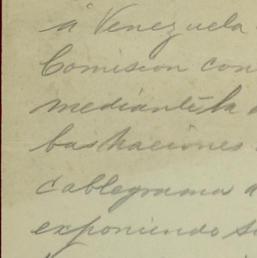 á Venezuela
Comision con
mediante la
bas naciones
cablegrama a
exponiendo su